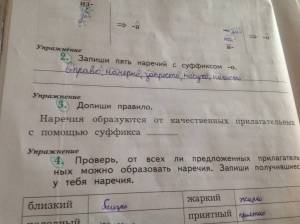 из-
⇒ -а
⇒ -о
в-
Упражнение
2. Запиши пять наречий с суффиксом -о.
Вправо, намертво, запросто, насухо, налево
Упражнение
3. Допиши правило.
Наречия образуются от качественных прилагательных
с помощью суффикса
Упражнение
4. Проверь, от всех ли предложенных прилагатель
ных можно образовать наречия. Запиши получившиес
у тебя наречия.
близкий близко жаркий жарко
приятный приятно